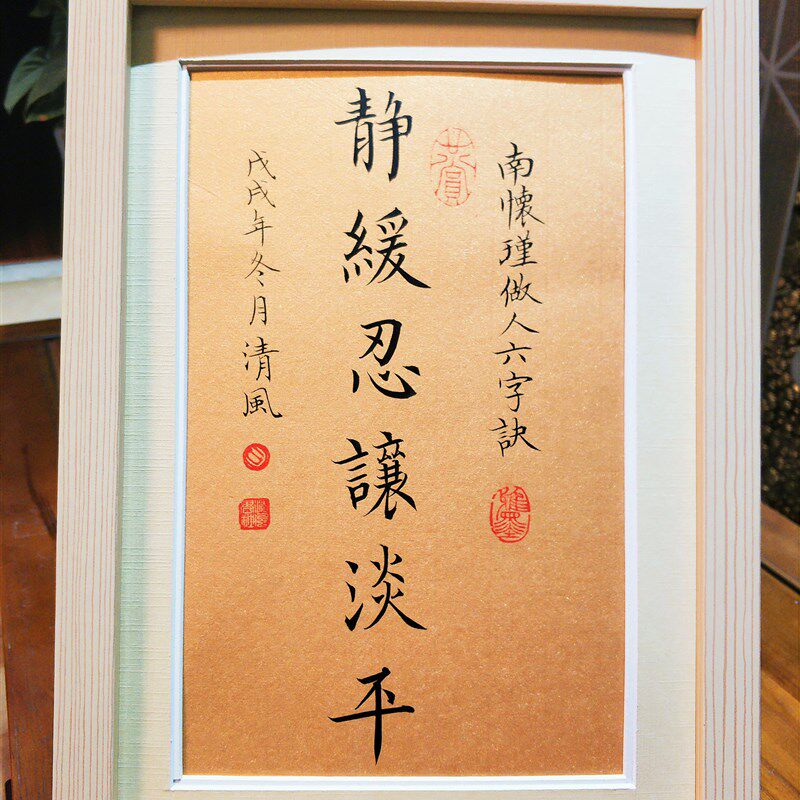 南懷瑾做人六字訣
静緩忍讓淡平
戊戌年冬月清風